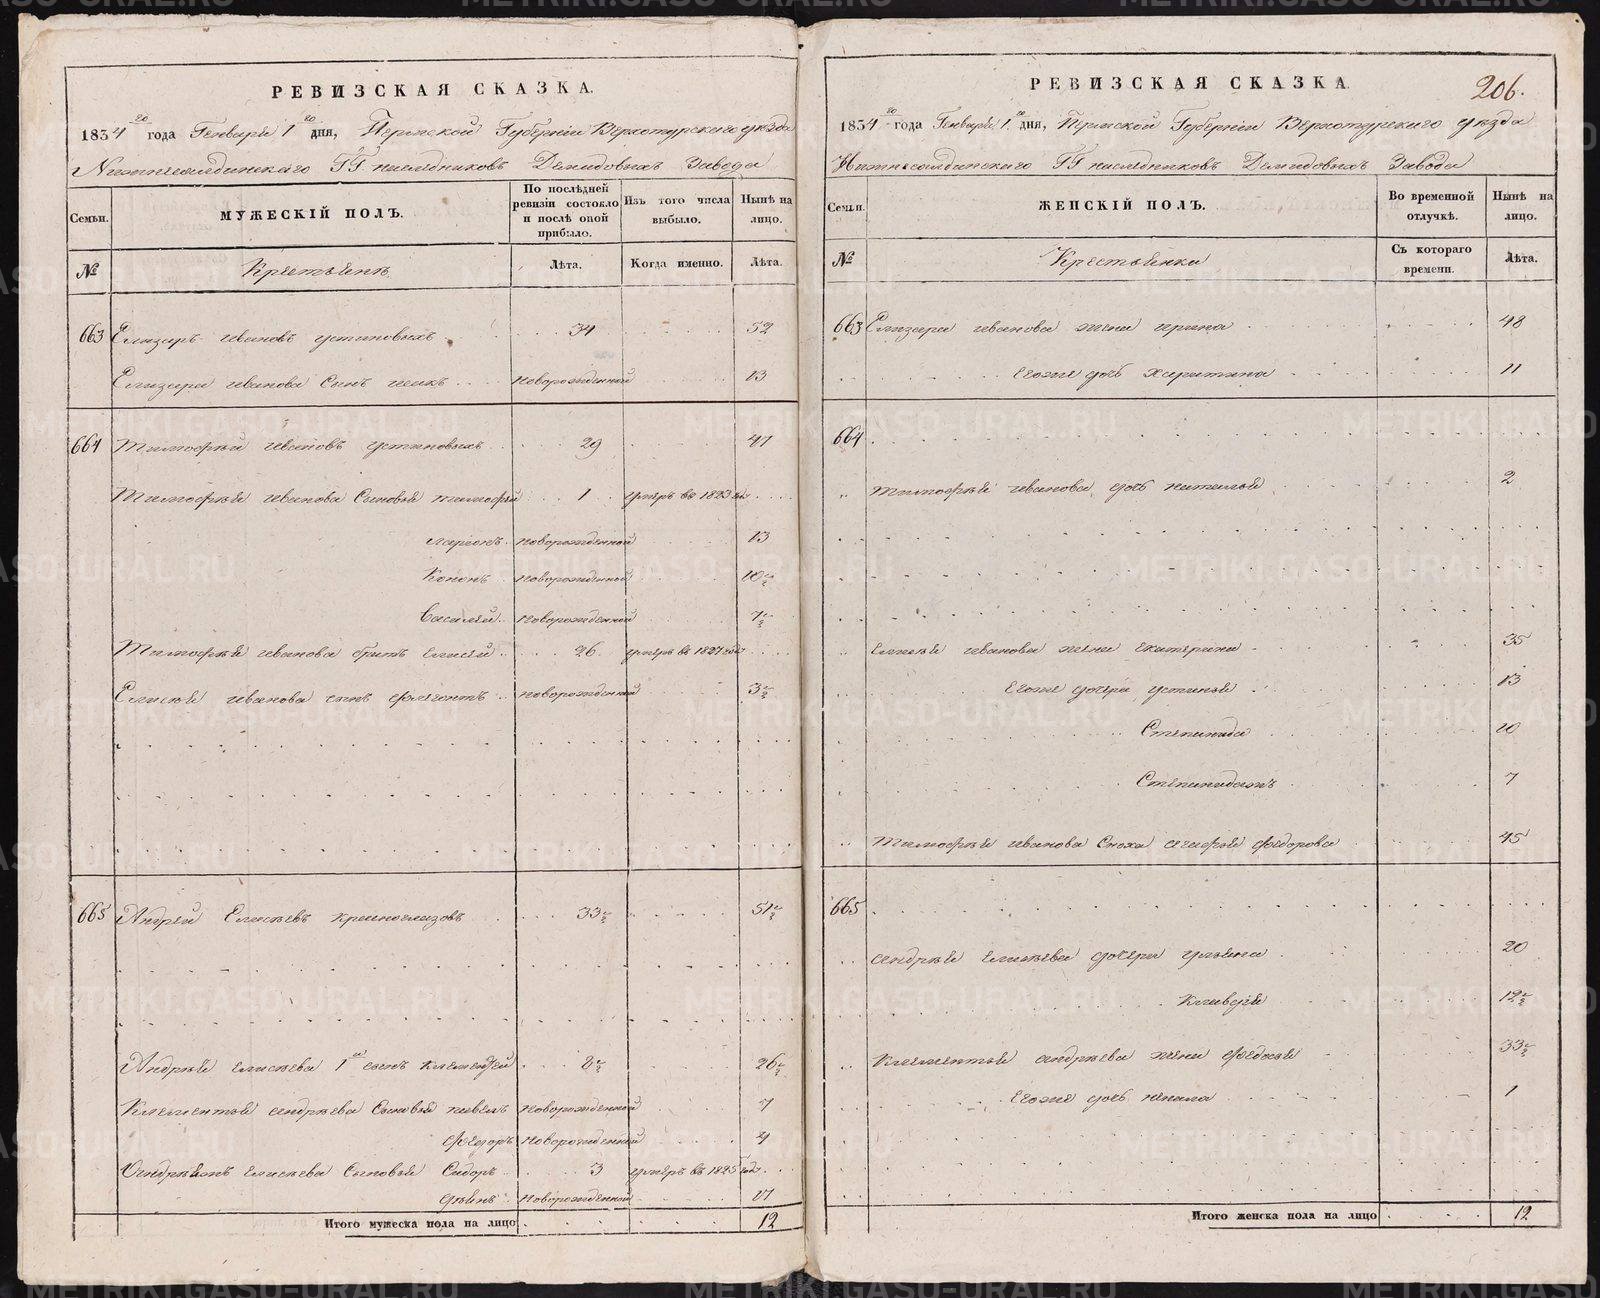 РЕВИЗСКАЯ СКАЗКА.
1834го года Генваря 1го дня, Пермской Губернiи Верхотурскаго уѣзда
Нижнесалдинскаго ГГ. наслѣдниковъ Демидовыхъ Завода
Семьи.
МУЖЕСКIЙ ПОЛЪ.
По послѣдней ревизiи состояло и послѣ оной прибыло.
Изъ того числа выбыло.
Нынѣ на лицо.
№
Крестьяне
Лѣта.
Когда именно.
Лѣта.
663 Елизаръ Ивановъ Устиновыхъ 34 52
Елизара Иванова Сынъ новорожденной 13
664 Тимофѣй Ивановъ Устиновыхъ 29 47
Тимофѣя Иванова Сыновья Тимофѣй 1 умеръ въ 1823 год
Ларионъ новорожденной 13
Кононъ новорожденной 10½
Василей новорожденной 7½
Тимофѣя Иванова братъ Елисей 26 умеръ въ 1827 год
Елисея Иванова сынъ новорожденной 3½
665 Андрей Елисѣевъ 33½ 51½
Андрѣя Елисѣева 1й сынъ Клементей 8½ 26½
Клементья Андрѣева Сыновья Павелъ новорожденной 7
Федоръ новорожденной 4
Андрѣя Елисѣева Сыновья Сидоръ 3 умеръ въ 1825 год
новорожденной 17
Итого мужеска пола на лицо 12
РЕВИЗСКАЯ СКАЗКА.
206.
1834го года Генваря 1го дня, Пермской Губернiи Верхотурскаго уѣзда
Нижнесалдинскаго ГГ. наслѣдниковъ Демидовыхъ Завода
Семьи.
ЖЕНСКIЙ ПОЛЪ.
Во временной отлучкѣ.
Нынѣ на лицо.
№
Крестьянки
Съ котораго времени.
Лѣта.
663 Елизара Иванова жена Ирина 48
Егоже дочь Харитина 11
664
Тимофѣя Иванова дочь Наталья 2
Елисея Иванова жена Екатерина 35
Егоже дочери Устинья 13
Степанида 10
7
Тимофѣя Иванова Сноха Агафья Федорова 45
665
Андрѣя Елисѣева дочери Ульяна 20
Клавдiя 12½
Клементья Андрѣева жена Федосья 33½
Егоже дочь 1
Итого женска пола на лицо 12
METRIKI.GASO-URAL.RU